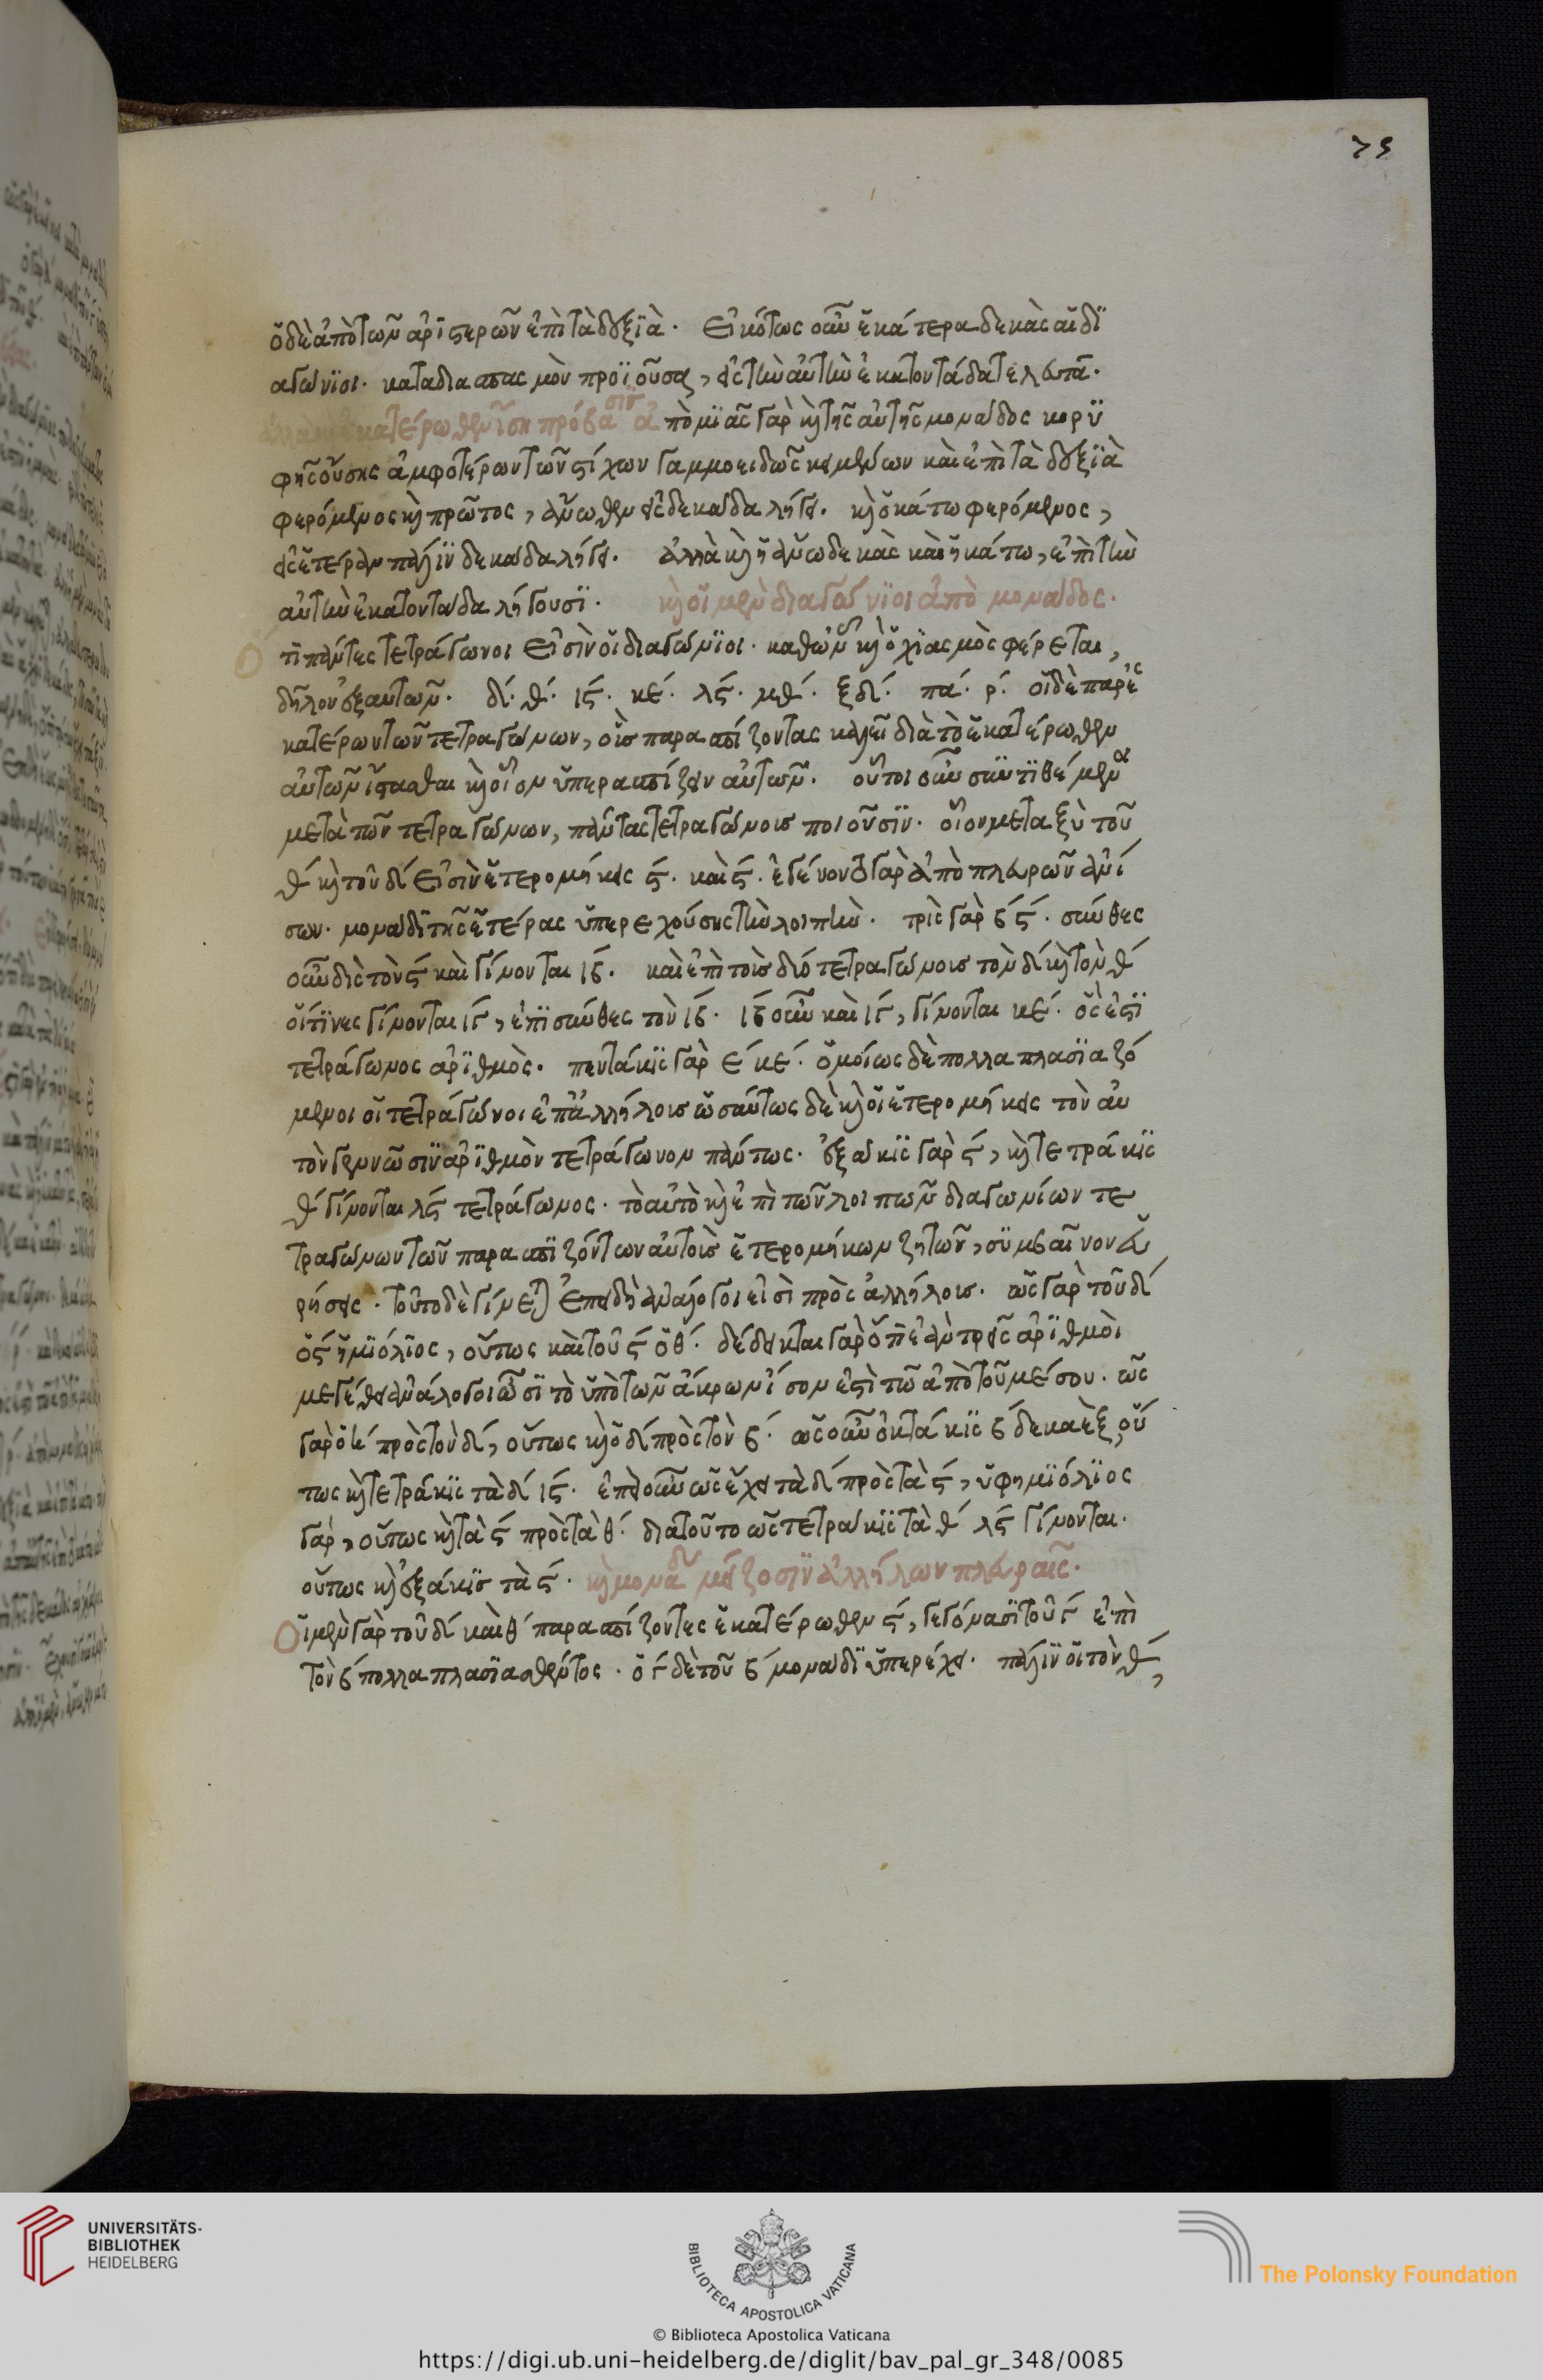 79
ὁ δὲ ἀπὸ τῶν ἀριστερῶν ἐπὶ τὰ δεξιὰ. εἰκότως οὖν ἑκάτερα δεκὰς αἱ δι
αγώνιοι. κατὰ διασπασμὸν προϊοῦσαι, εἰς τὴν αὐτὴν ἑκατοντάδα τελευτᾶ.
ἑκατέρωθεν πρόβασιν ἀπὸ μιᾶς γὰρ καὶ τῆς αὐτῆς μονάδος κορυ
φῆς οὔσης ἀμφοτέρων τῶν στίχων γαμμοειδῶς κειμένων καὶ ἐπὶ τὰ δεξιὰ
φερόμενος καὶ πρῶτος, ἄνωθεν εἰς δεκάδα λήγει. καὶ ὁ κάτω φερόμενος,
εἰς ἑτέραν πάλιν δεκάδα λήγει. ἀλλὰ καὶ ἡ ἄνω δεκὰς καὶ ἡ κάτω, ἐπὶ τὴν
αὐτὴν ἑκατοντάδα λήγουσι. καὶ οἱ μὲν διαγώνιοι ἀπὸ μονάδος.
Ὅτι πάντες τετράγωνοι εἰσὶν οἱ διαγώνιοι. καθ' ὧν καὶ ὁ χιασμὸς φέρεται,
δῆλον ἐξ αὐτῶν. δ΄. θ΄. ις΄. κε΄. λς΄. μθ΄. ξδ΄. πα΄. ρ΄. οἱ δὲ παρ' ἑ
κατέρων τῶν τετραγώνων, οὓς παρασπίζοντας καλεῖ διὰ τὸ ἑκατέρωθεν
αὐτῶν ἵστασθαι καὶ οἷον ὑπερασπίζειν αὐτῶν. οὗτοι οὖν συντιθέμενοι
μετὰ τῶν τετραγώνων, πάντας τετραγώνους ποιοῦσιν. οἷον μεταξὺ τοῦ
θ΄ καὶ τοῦ δ΄ εἰσὶν ἑτερομήκεις ς΄. καὶ ς΄. ἐγένοντο γὰρ ἀπὸ πλευρῶν ἀνί
σων. μονάδι τῆς ἑτέρας ὑπερεχούσης τὴν λοιπὴν. τρὶς γὰρ β ς΄. σύνθες
οὖν δὶς τὸν ς΄ καὶ γίνονται ιβ΄. καὶ ἐπὶ τοῖς δυὸ τετραγώνοις τὸν δ΄ καὶ τὸν θ΄
οἵτινες γίνονται ιγ΄, ἐπισύνθες τὸν ιβ΄. ιβ οὖν καὶ ιγ΄, γίνονται κε΄. ὅς ἐστι
τετράγωνος ἀριθμὸς. πεντάκις γὰρ ε΄ κε΄. ὁμοίως δὲ πολλαπλασιαζό
μενοι οἱ τετράγωνοι ἐπ' ἀλλήλοις ὡσαύτως δὲ καὶ οἱ ἑτερομήκεις τὸν αὐ
τὸν γεννῶσιν ἀριθμὸν τετράγωνον πάντως. ἑξάκις γὰρ ς΄, καὶ τετράκις
θ΄ γίνονται λς΄ τετράγωνος. τὸ αὐτὸ καὶ ἐπὶ τῶν λοιπῶν διαγωνίων τε
τραγώνων τῶν παρασπιζόντων αὐτοὺς ἑτερομήκων ζητῶν, συμβαῖνον εὑ
ρήσεις. τοῦτο δὲ γίνεται ἐπειδὴ ἀνάλογοι εἰσὶ πρὸς ἀλλήλους. ὡς γὰρ τοῦ δ΄
ὁ ς΄ ἡμιόλιος, οὕτως καὶ τοῦ ς΄ ὁ θ΄. δέδεικται γὰρ ὅτι ἐὰν τρεῖς ἀριθμοὶ
μεγέθει ἀνάλογοι ὦσι τὸ ὑπὸ τῶν ἄκρων ἴσον ἐστὶ τῶ ἀπὸ τοῦ μέσου. ὡς
γὰρ ὁ η΄ πρὸς τὸν δ΄, οὕτως καὶ ὁ δ΄ πρὸς τὸν β΄. ὡς οὖν ὀκτάκις β δεκαὲξ, οὕ
τως καὶ τετράκις τὰ δ΄ ις΄. ἐπεὶ οὖν ὡς ἔχει τὰ δ΄ πρὸς τὰ ς΄, ὑφημιόλιος
γὰρ, οὕτως καὶ τὰ ς΄ πρὸς τὰ θ΄. διατοῦτο ὡς τετράκις τὰ θ΄ λς΄ γίνονται.
οὕτως καὶ ἑξάκις τὰ ς΄. καὶ μονάδι μείζοσιν ἀλλήλων πλευραῖς.
Οἱ μὲν γὰρ τοῦ δ΄ καὶ θ΄ παρασπίζοντες ἑκατέρωθεν ς΄, γεγόνασι τοῦ γ΄ ἐπὶ
τὸν β΄ πολλαπλασιασθέντος. ὁ γ΄ δὲ τοῦ β΄ μονάδι ὑπερέχει. πάλιν οἱ τὸν θ΄,
UNIVERSITÄTS-
BIBLIOTHEK
HEIDELBERG
BIBLIOTECA APOSTOLICA VATICANA
The Polonsky Foundation
© Biblioteca Apostolica Vaticana
https://digi.ub.uni-heidelberg.de/diglit/bav_pal_gr_348/0085